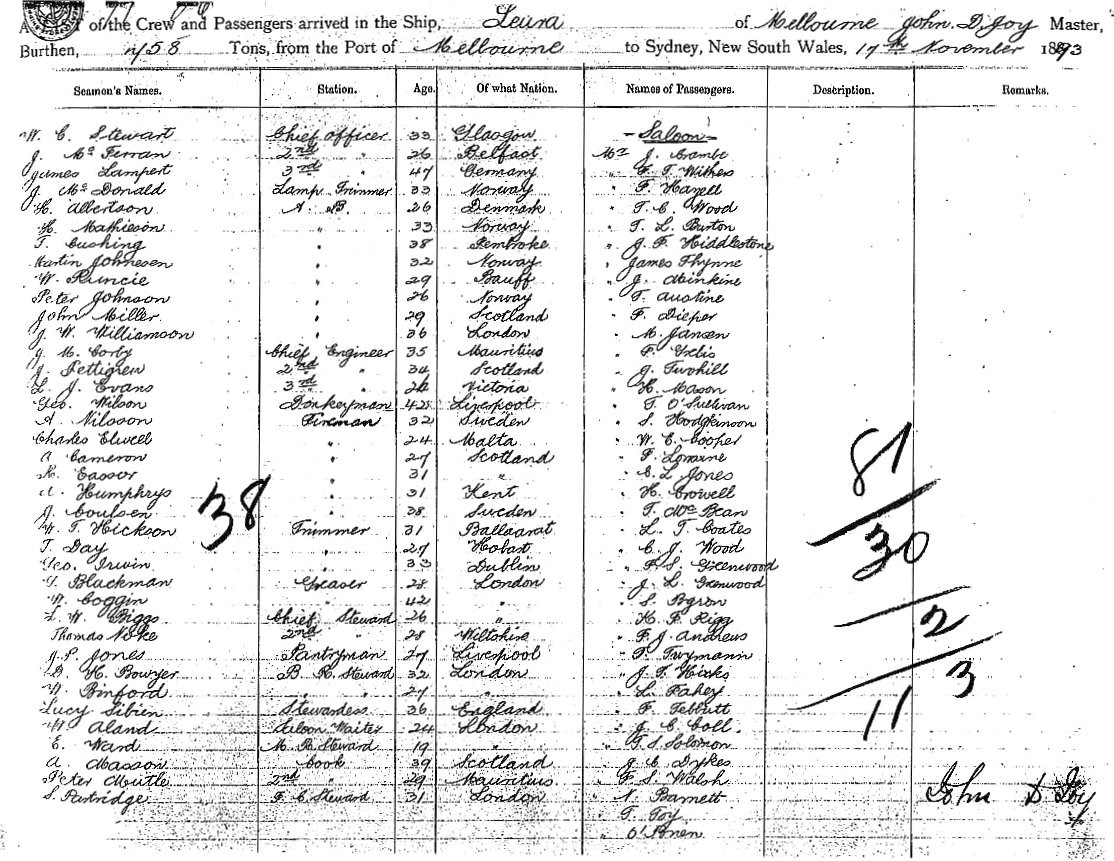 of the Crew and Passengers arrived in the Ship, Leura of Melbourne John D Joy Master,
Burthen, Tons, from the Port of Melbourne to Sydney, New South Wales, 17th November 1893
Seamen's Names. Station. Age. Of what Nation. Names of Passengers. Description. Remarks.
W. C. Stewart Chief Officer 33 Glasgow - Saloon -
J. Mc Ferran 2nd " 26 Belfast Mr J. Crombe
James Lampert 3rd " 47 Germany " F. T. Withes
J. McDonald Lamp Trimmer 33 Norway " F. Hazell
H. Albertson A. B. 26 Denmark " T. C. Wood
H. Mathieson " 33 Norway " T. L. Burton
T. Cushing " 38 Pembroke " J. F. Hiddlestone
Martin Johnesen " 32 Norway James Thynne
W. Runcie " 29 Banff " J. Minkine
Peter Johnson " 26 Norway " T. Austine
John Miller " 29 Scotland " F. Dieper
J. W. Williamson " 36 London " M. Jansen
J. M. Corby Chief Engineer 35 Mauritius " F.
J. Pettigrew 2nd " 34 Scotland " J. Tuohill
L. J. Evans 3rd " 26 Victoria " H. Mason
Geo. Wilson Donkeyman 42 Liverpool " T. O'Sullivan
A. Nilsson Fireman 32 Sweden " S. Hodgkinson
Charles Elwell " 24 Malta " W. E. Cooper
A Cameron " 27 Scotland " F. Lorraine
K. Eassor " 31 " " E. L Jones
A. Humphrys " 31 Kent " H. Crowell
J. Coulsen " 28 Sweden " T. McBean
W. T. Hickson Trimmer 31 Ballaarat " L. T. Coates
T. Day " 27 Hobart " C. J. Wood
Geo. Irwin " 33 Dublin " F. S. Greenwood
G. Blackman Greaser 28 London " J. L. Greenwood
W. Coggin " 42 " " S. Byron
L. W. Biggs Chief Steward 26 " " H. F. Rigg
Thomas Noke 2nd " 28 Wiltshire " F. J. Andrews
J. P. Jones Pantryman 27 Liverpool " T. Twymann
D. H. Bowyer B. R. Steward 32 London " J. T. Hicks
W. Binford " " 27 " " L. Fahey
Lucy Sibien Stewardess 36 England " F. Tebbutt
W. Aland Saloon Waiter 24 London " J. C. Coll.
E. Ward M. R. Steward 19 " " T. S. Solomon
A Masson Cook 39 Scotland " J. C. Dykes
Peter Mutle 2nd " 29 Mauritius " F. S. Walsh
S. Partridge F. C. Steward 31 London " N. Barnett
" T. Toy
" O'Brien
38
81
30
2
3
11
John D Joy